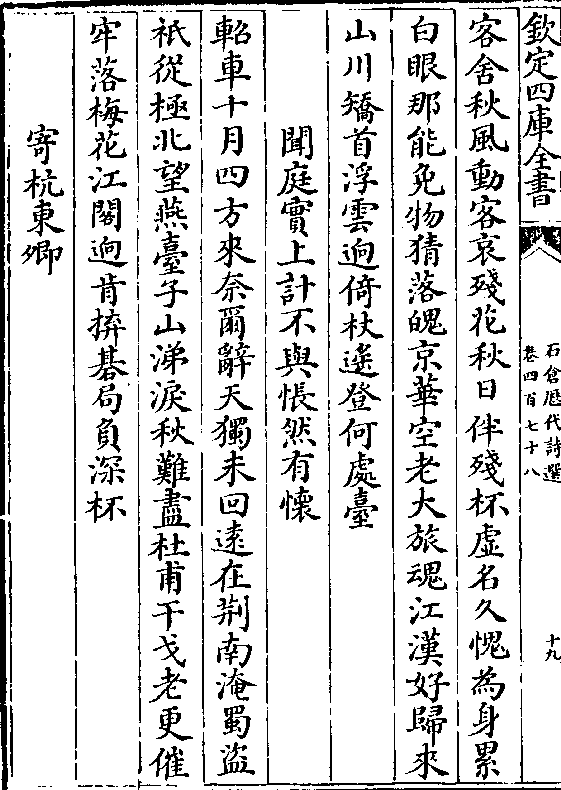 欽定四庫全書
石倉歴代詩選
卷四百七十八
十九
客舍秋風動客哀殘花秋日伴殘杯虚名久愧為身累
白眼那能免物猜落魄京華空老大旅魂江漢好歸來
山川矯首浮雲逈倚杖遙登何處臺
聞庭實上計不與悵然有懷
軺車十月四方來奈爾辭天獨未回遠在荆南淹蜀盜
祇從極北望燕臺子山涕淚秋難盡杜甫干戈老更催
牢落梅花江閣逈肯拚棊局負深杯
寄杭東卿